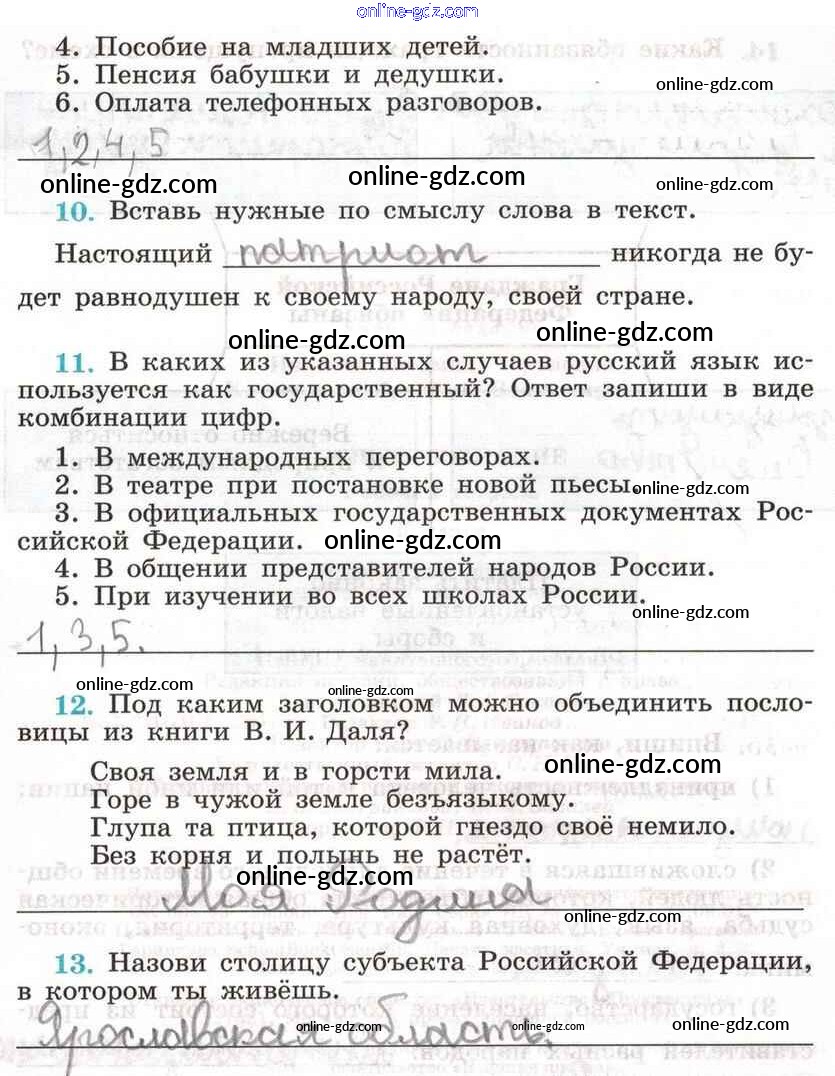 online-gdz.com
4. Пособие на младших детей.
5. Пенсия бабушки и дедушки.
online-gdz.com
6. Оплата телефонных разговоров.
1,2,4,5
online-gdz.com online-gdz.com online-gdz.com
10. Вставь нужные по смыслу слова в текст.
Настоящий патриот никогда не бу-
дет равнодушен к своему народу, своей стране.
online-gdz.com online-gdz.com
11. В каких из указанных случаев русский язык ис-
пользуется как государственный? Ответ запиши в виде
комбинации цифр.
1. В международных переговорах.
2. В театре при постановке новой пьесы.
online-gdz.com
3. В официальных государственных документах Рос-
сийской Федерации. online-gdz.com
4. В общении представителей народов России.
5. При изучении во всех школах России.
online-gdz.com
1,3,5.
online-gdz.com online-gdz.com
12. Под каким заголовком можно объединить посло-
вицы из книги В. И. Даля?
Своя земля и в горсти мила. online-gdz.com
Горе в чужой земле безъязыкому.
Глупа та птица, которой гнездо своё немило.
Без корня и полынь не растёт.
online-gdz.com
Моя Родина
online-gdz.com
13. Назови столицу субъекта Российской Федерации,
в котором ты живёшь.
Ярославская область.
online-gdz.com online-gdz.com online-gdz.com